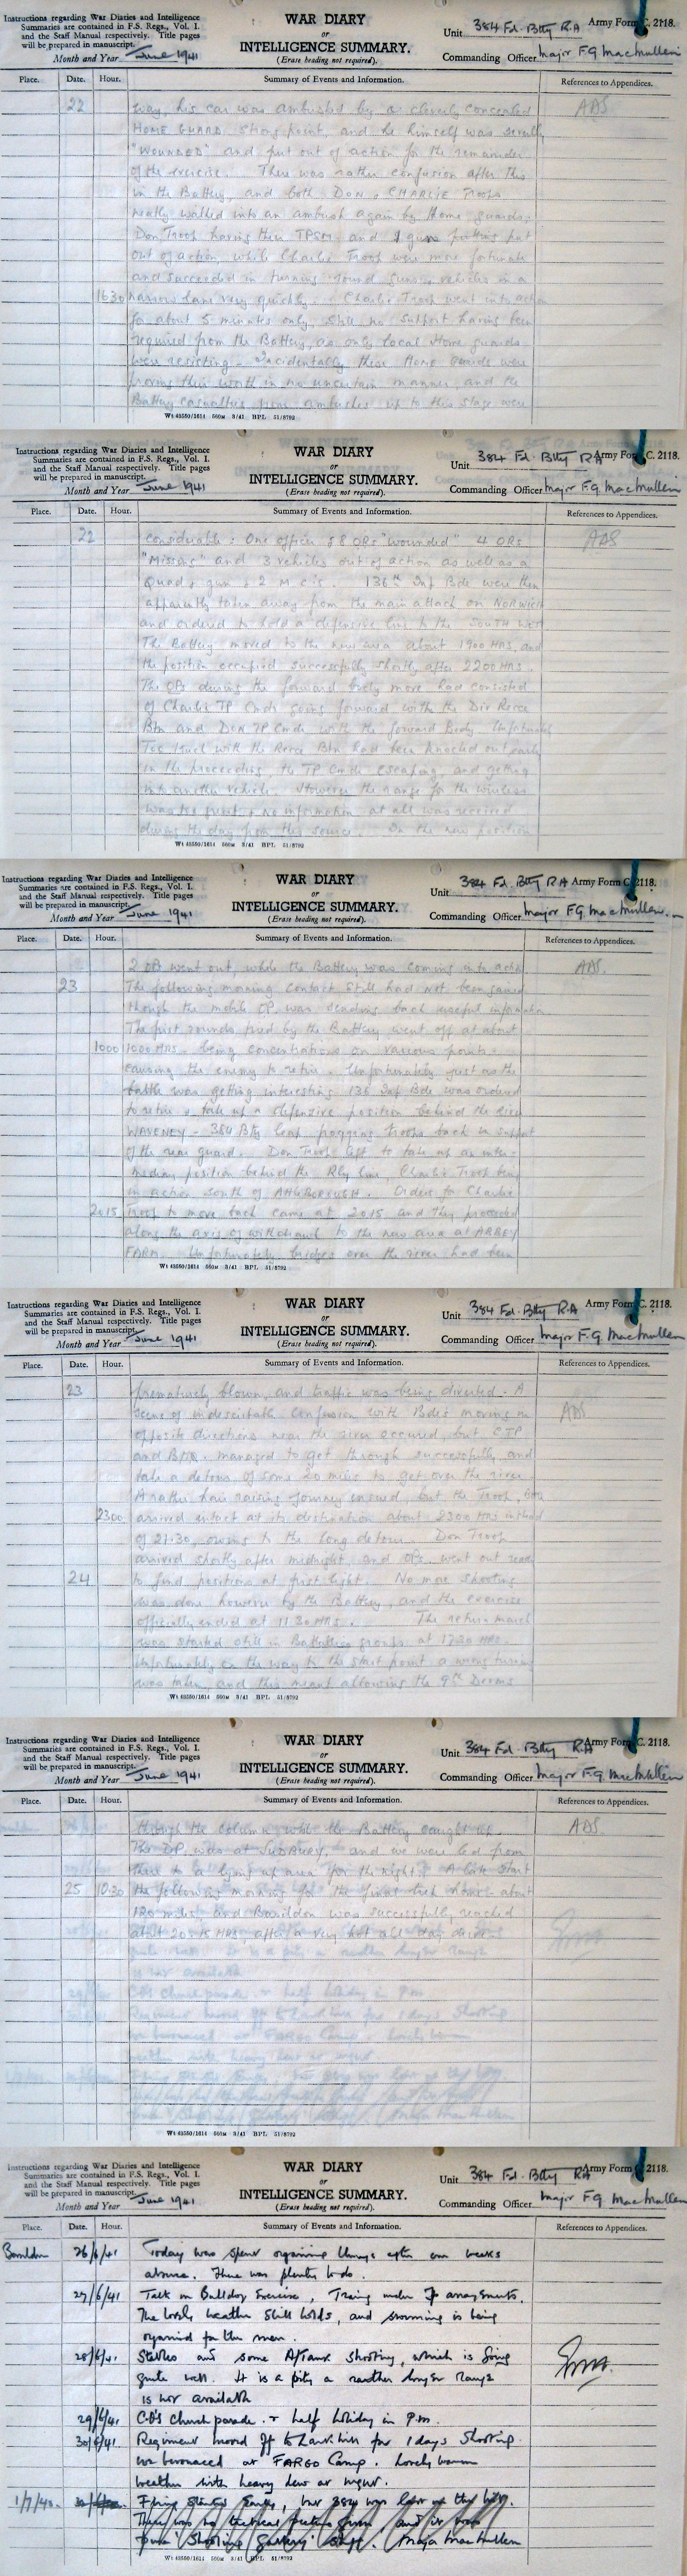 Instructions regarding War Diaries and Intelligence
Summaries are contained in F.S. Regs., Vol. I.
and the Staff Manual respectively. Title pages
will be prepared in manuscript.
Month and Year June 1941
WAR DIARY
or
INTELLIGENCE SUMMARY.
(Erase heading not required).
Army Form C. 2118.
Unit 384 Fd. Btty R.A
Commanding Officer Major F.G. MacMullen
Place. Date. Hour. Summary of Events and Information. References to Appendices.
22 way, his car was ambushed by a cleverly concealed ADS
HOME GUARD strong point, and he himself was
"WOUNDED" and put out of action for the remainder
of the exercise. There was rather confusion after this
in the Battery, and both DON & CHARLIE Troops
neatly walked into an ambush again by Home guards.
Don Troop having their TPSM. and 1 gun put
out of action, while Charlie Troop were more fortunate
and succeeded in turning round guns & vehicles in a
1630 narrow lane very quickly. Charlie Troop went into action
for about 5 minutes only, still no support having been
required from the Battery, as only local Home guards
were resisting - incidentally these Home Guards were
proving their worth in no uncertain manner and the
Battery casualties from ambushes up to this stage were
Wt 43550/1614 560M 3/41 BPL 51/8792
Instructions regarding War Diaries and Intelligence
Summaries are contained in F.S. Regs., Vol. I.
and the Staff Manual respectively. Title pages
will be prepared in manuscript.
Month and Year June 1941
WAR DIARY
or
INTELLIGENCE SUMMARY.
(Erase heading not required).
Army Form C. 2118.
Unit 384 Fd. Btty R A
Commanding Officer Major F.G. MacMullen
Place. Date. Hour. Summary of Events and Information. References to Appendices.
22 considerable: One officer & 8 ORs "wounded" 4 ORs ADS
"Missing" and 3 vehicles out of action as well as a
Quad, gun & 2 M/cs. 136th Inf Bde were then
apparently taken away from the main attack on NORWICH
and ordered to hold a defensive line to the SOUTH WEST
The Battery moved to the new area about 1900 HRS, and
the position occupied successfully shortly after 2200 HRS.
The OPs during the forward Body move had consisted
of Charlie TP Cmdr going forward with the Div Recce
Btn and DON TP Cmdr with the forward Body. Unfortunately
Toc with the Recce Btn had been knocked out early
in the proceeding, the TP Cmdr escaping and getting
into another vehicle. However the range for the wireless
was too great & no information at all was received
during the day from this source. In the new position
Wt 43550/1614 560M 3/41 BPL 51/8792
Instructions regarding War Diaries and Intelligence
Summaries are contained in F.S. Regs., Vol. I.
and the Staff Manual respectively. Title pages
will be prepared in manuscript.
Month and Year June 1941
WAR DIARY
or
INTELLIGENCE SUMMARY.
(Erase heading not required).
Army Form C. 2118.
Unit 384 Fd. Btty R A
Commanding Officer Major F.G. MacMullen.
Place. Date. Hour. Summary of Events and Information. References to Appendices.
2 OPs went out, while the Battery was coming into action ADS.
23 The following morning contact still had not been gained
though the mobile OP. was sending back useful information
The first rounds fired by the Battery went off at about
1000 1000 HRS. being concentrations on various points.
causing the enemy to retire. Unfortunately just as the
battle was getting interesting 136 Inf Bde was ordered
to retire & take up a defensive position behind the river
WAVENEY - 384 Bty leap frogging troops back in support
of the rear guard. Don Troop left to take up an inter-
mediary position behind the Rly line, Charlie Troop being
in action south of ATTLEBOROUGH. Orders for Charlie
2015 Troop to move back came at 2015 and they proceeded
along the axis of withdrawl to the new area at ABBEY
FARM. Unfortunately bridges over the river had been
Wt 43550/1614 560M 3/41 BPL 51/8792
Instructions regarding War Diaries and Intelligence
Summaries are contained in F.S. Regs., Vol. I.
and the Staff Manual respectively. Title pages
will be prepared in manuscript.
Month and Year June 1941
WAR DIARY
or
INTELLIGENCE SUMMARY.
(Erase heading not required).
Army Form C. 2118.
Unit 384 Fd. Btty R.A
Commanding Officer Major F.G MacMullen
Place. Date. Hour. Summary of Events and Information. References to Appendices.
23 prematurely blown, and traffic was being diverted. A
scene of indescribable confusion with Bdes moving in ADS
opposite directions near the river occured, but C TP
and managed to get through successfully and
take a detour of some 20 miles to get over the river.
A rather hair raising journey ensued, but the Troop
2300 arrived intact at its destination about 2300 HRS instead
of 21.30, owing to the long detour. Don Troop
arrived shortly after midnight, and OPs. went out ready
24 to find positions at first light. No more shooting
was done however by the Battery, and the exercise
officially ended at 1130 HRS. The return march
was started still in Battalion groups at 1730 HRS.
Unfortunately on the way to the start point a wrong turning
was taken, and this meant allowing the 9th Dorsets
Wt 43550/1614 560M 3/41 BPL 51/8792
Instructions regarding War Diaries and Intelligence
Summaries are contained in F.S. Regs., Vol. I.
and the Staff Manual respectively. Title pages
will be prepared in manuscript.
Month and Year June 1941
WAR DIARY
or
INTELLIGENCE SUMMARY.
(Erase heading not required).
Army Form C. 2118.
Unit 384 Fd. Btty R.A
Commanding Officer Major F.G. MacMullen
Place. Date. Hour. Summary of Events and Information. References to Appendices.
through the column while the Battery caught up. ADS
The D.P. was at SUDBURY, and we were led from
there to a lying up area for the night. A late start
25 10.30 the following morning for the final trek home about
120 miles, and Basildon was successfully reached
about 20.15 HRS, after a very hot all day drive.
Wt 43550/1614 560M 3/41 BPL 51/8792
Instructions regarding War Diaries and Intelligence
Summaries are contained in F.S. Regs., Vol. I.
and the Staff Manual respectively. Title pages
will be prepared in manuscript.
Month and Year June 1941
WAR DIARY
or
INTELLIGENCE SUMMARY.
(Erase heading not required).
Army Form C. 2118.
Unit 384 Fd. Btty RA
Commanding Officer Major F.G MacMullen
Place. Date. Hour. Summary of Events and Information. References to Appendices.
Basildon 26/6/41 Today was spent organising things after our weeks
absence. There was plenty to do.
27/6/41 Talk on Bulldog Exercise, Traing under Tp arrangements.
The lovely weather still holds, and swimming is being
organised for the men.
28/6/41 Stables and some A/Tank shooting, which is going
quite well. It is a pity a longer Range
is not available
29/6/41 C.O's Church parade. & half holiday in P.m.
30/6/41 Regiment moved off to Larkhill for 1 days Shooting.
we bivouaced at FARGO Camp. Lovely warm
weather with heavy dew at night.
1/7/41. Firing Started Early, but 384 was last on the list.
There was no tactical picture given, and it was
pure 'Shooting Gallery' stuff. Major MacMullen
Wt 43550/1614 560M 3/41 BPL 51/8792